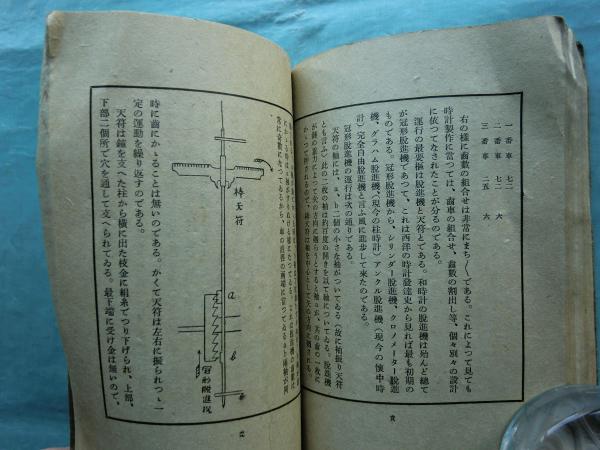 一番車 七二
二番車 七二 六
三番車 二五 六
右の様に齒數の組合せは非常にまち〳〵である。これによつて見ても
時計製作に當つては、齒車の組合せ、齒數の割出し等、個々別々の設計
に依つてなされたことが分るのである。
運行の最要樞は脫進機と天符とである。和時計の脫進機は殆んど總て
が冠形脫進機であつて、これは西洋の時計發達史から見れば最も初期の
ものである。冠形脫進機から、シリンダー脫進機、クロノメーター脫進
機、グラハム脫進機、(現今の柱時計)アンクル脫進機(現今の懷中時
計)完全自由脫進機と言ふ風に進步して來たのである。
冠形脫進機の運行は次の通りである。
天符の軸には、a、b、二個の小さな袖がついてゐる(故に袖振り天符
とも言ふ)此の二枚の袖は約百度の開きを以て軸についてゐる。脫進機
が錘の重力によつて矢の方向に廻らうとすると袖aが、其の齒の一枚に
棒天符
a
b
冠形脫進機
時に齒にかゝることは無いのである。かくて天符は左右に振られつゝ一
定の運動を繰り返すのである。
天符は鐘を支へた柱から橫に出た枝金に組糸でつり下げられ、上部、
下部二個所で穴を通して支へられてゐる。最下端に受け金は無いので、